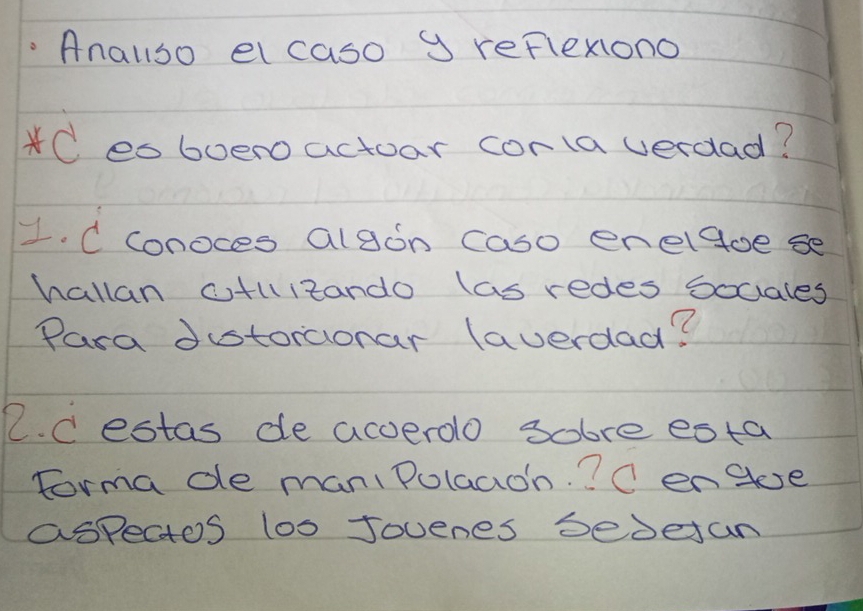 · Analiso el caso y reflexiono
*¿ es bueno actuar con la verdad?
1. ¿ conoces algún caso en el que se
hallan utilizando las redes sociales
Para distorcionar la verdad?
2. ¿ estas de acuerdo sobre esta
Forma de maniPulación.? ¿ en que
asPectos los Jovenes se dejan